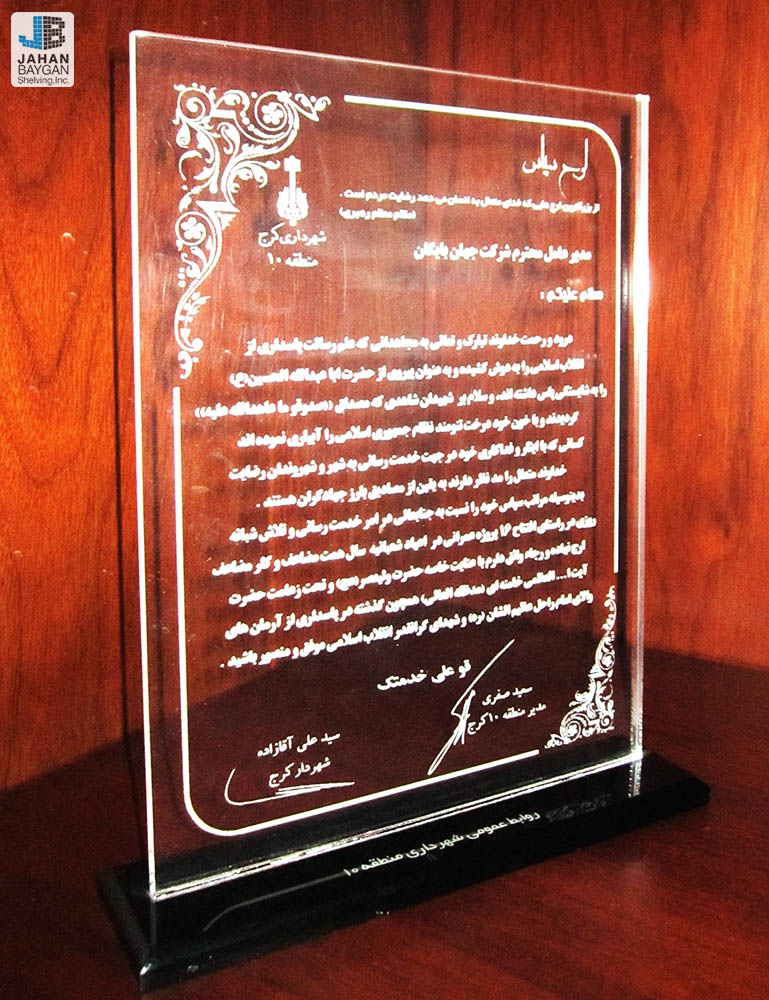 JB
JAHAN
BAYGAN
Shelving.Inc.
لوح سپاس
از بزرگترین اجر هایی که خدای متعال به انسان می دهد رضایت مردم است .
(مقام معظم رهبری)
شهرداری کرج
منطقه ۱۰
مدیر عامل محترم شرکت جهان بایگان
سلام علیکم :
درود و رحمت خداوند تبارک و تعالی به مجاهدانی که علم رسالت پاسداری از
انقلاب اسلامی را به دوش کشیده و به عنوان پیروی از حضرت ابا عبدالله الحسین(ع)
را به شایستگی پاس داشته اند، و سلام بر شهیدان شاهدی که مصداق <<صدوقو ما عاهدالله علیه>>
گردیدند و با خون خود درخت تنومند نظام جمهوری اسلامی را آبیاری نموده اند
کسانی که با ایثار و فداکاری خود در جهت خدمت رسانی به شهر و شهروندان رضایت
خداوند متعال را مد نظر دارند به یقین از مصادیق بارز جهادگران هستند .
بدینوسیله مراتب سپاس خود را نسبت به جنابعالی در امر خدمت رسانی و تلاش شبانه
روزی در راستای افتتاح ۱۶ پروژه عمرانی در اعیاد شعبانیه سال همت مضاعف و کار مضاعف
ارج نهاده و رجاء واثق دارم با عنایت خاصه حضرت ولیعصر (عج) و تحت زعامت حضرت
آیت ا... العظمی خامنه ای (مدظله العالی) همچون گذشته در پاسداری از آرمان های
والای امام راحل عظیم الشان (ره) و شهدای گرانقدر انقلاب اسلامی موفق و منصور باشید .
قو علی خدمتک
سعید صفری
مدیر منطقه ۱۰ کرج
سید علی آقازاده
شهردار کرج
روابط عمومی شهرداری منطقه ۱۰